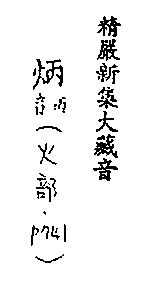 精嚴新集大藏音
炳音丙（火部，p741）